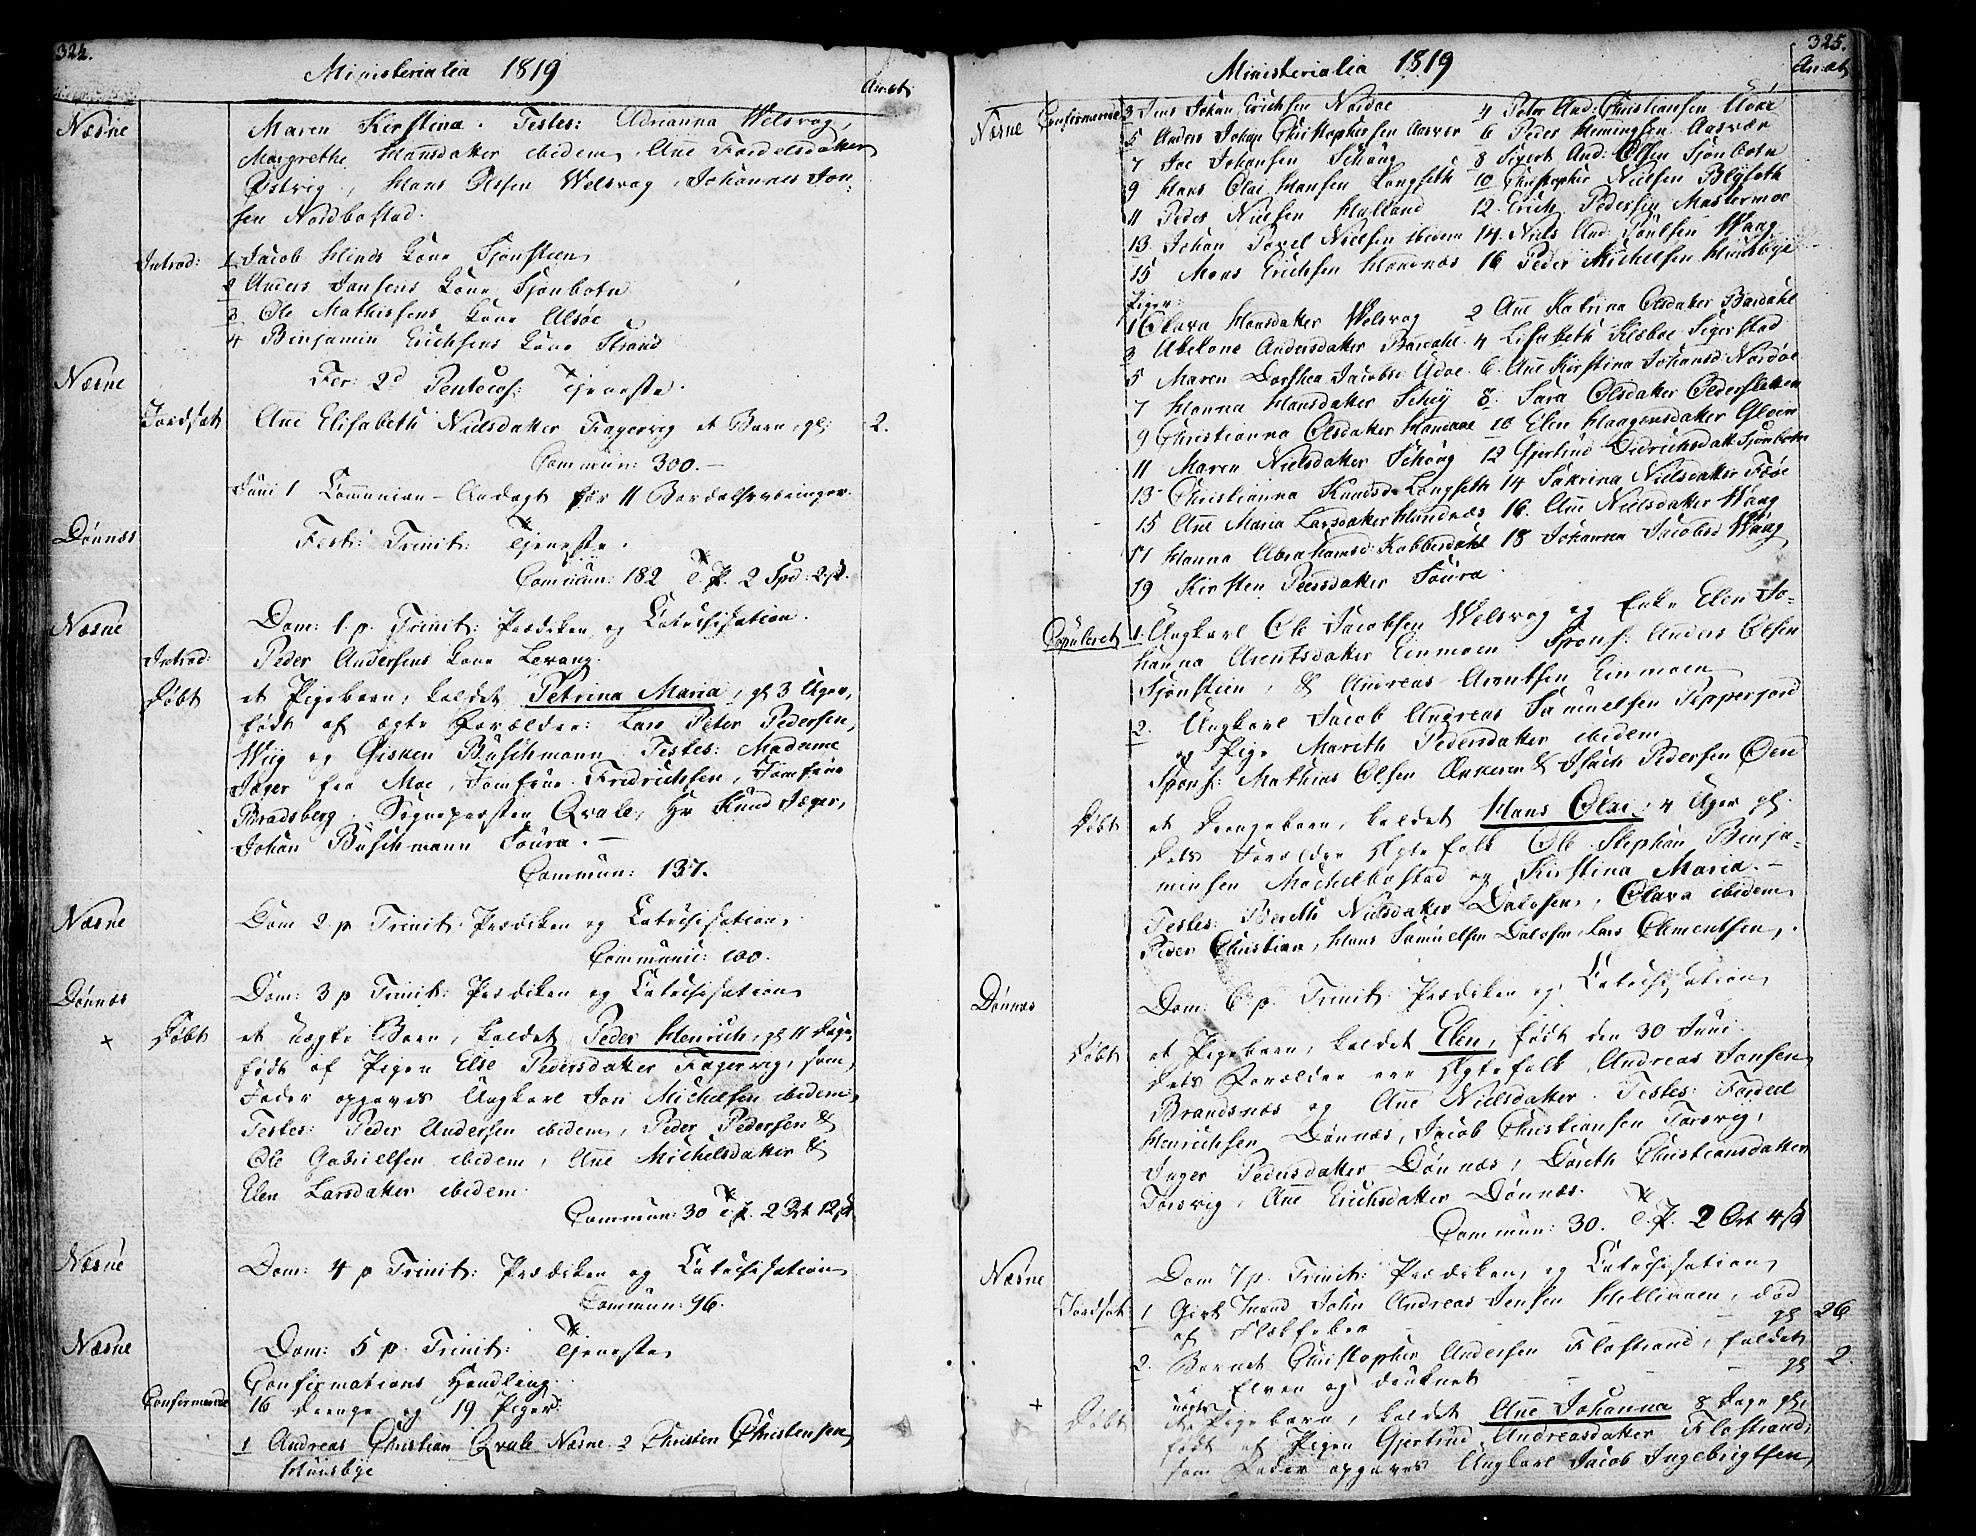 324.
Ministerialia 1819
An: æt:
Næsne
Maren Kirstina. Testes: Adrianna Welsvog,
Margrethe Hansdatter ibidem, Ane Fordelsdatter
Østvig, Hans Olsen Welsvog, Johannes Jon-
sen Nordbostad.
Introd: 1 Jacob Hinds Kone Sjonsteen
2 Anders Jansens Kone Sjonbotn
3 Ole Mathissens Kone Alsøe
4 Benjamin Erichsens Kone Strand
Næsne
Fer: 2d Pentecos: Tjeneste.
Jordfæt Ane Elisabeth Nielsdatter Fagervig et Barn, gl: 2.
Commun: 300.-
Juni 1 Communion-Andagt for 11 Bardalsværinger.
Dønnæs
Fest: Trinit: Tjeneste.
Commun: 182 T. P. 2 Spd: 2 s.
Næsne
Dom: 1. p. Trinit: Prædiken og Catechisation.
Introd: Peder Andersens Kone Levang.
Døbt et Pigebarn, kaldet Petrina Maria, gl 3 Uger,
født af ægte Forældre: Lars Peter Pedersen,
Wiig og Gisken Buschmann. Testes: Madame
Jæger fra Moe, Jomfrue Fredrichsen, Jomfrue
Bradsberg, Sognepræsten Qvale, Hr Knud Jæger,
Johan Buschmann Soura.-
Commun: 137.
Næsne
Dom 2. p Trinit: Prædiken og Catechisation,
Communic: 100.
Dønnæs
Dom: 3 p Trinit: Prædiken og Catechisation
+ Døbt et uægte Barn, kaldet Peder Henrich, gl 11 Dage,
født af Pigen Else Pedersdatter Fagervig, som
Fader opgaves Ungkarl Jon Michelsen ibidem,
Testes: Peder Andersen ibidem, Peder Pedersen &
Ole Gabrielsen ibidem, Ane Michelsdatter &
Elen Larsdatter ibidem.
Commun: 30 T. P. 2 Ort 12 s.
Næsne
Dom: 4 p Trinit: Prædiken og Catechisation
Commun: 96.
Næsne
Dom: 5 p. Trinit: Tjeneste
Confirmations Handling.
Confirmerede 16 Drenge og 19 Piger:
1 Andreas Christian Qvale Næsne 2 Christen Christensen
Huusbye
325.
Ministerialia 1819
An: æt:
Næsne Confirmerede 3 Jens Johan Erichsen Nordøe 4 Peter And: Christiansen Udøe
5 Anders Johan Christophersen Aasvær 6 Peder Hemingsen Aasvær
7 Joe Johansen Schoug 8 Sivert And: Olsen Sjonbotn
9 Hans Olai Hansen Langseth 10 Christopher Nielsen Blyseth
11 Peder Nielsen Hylland 12. Erich Pedersen Mastermoe
13. Johan Povel Nielsen ibidem 14. Niels And: Poulsen Waag
15 Mons Erichsen Handnæs 16 Peder Michelsen Huusbye
Piger:
1 Olava Hansdatter Welsvog 2 Ane Katrina Olsdatter Bardahl
3 Abelone Andersdatter Bardahl 4 Lisabeth Kildboe Sigerstad
5 Maren Dorthea Jacobsd: Udøe 6 Ane Kirstina Johansd: Nordøe
7 Hanna Hansdatter Schey 8. Sara Olsdatter Oldersletten
9 Christianna Olsdatter Handnæs 10 Elen Haagensdatter Gleen
11 Maren Nielsdatter Schoug 12 Gjertrud Didrichsdatt: Sjonbotn
13 Christianna Knudsd: Langseth 14 Sakrina Nielsdatter Føsøe
15 Ane Maria Larsdatter Handnæs 16. Ane Nielsdatter Waag
17 Hanna Abrahamsd: Kobberdahl 18 Johanna Jacobsd: Waag
19 Kirsten Peersdatter Soura.
Copuleret 1. Ungkarl Ole Jacobsen Welsvog og Enke Elen Jo-
hanna Arentsdatter Einmoen Spons: Anders Olsen
Sjonstein, & Andreas Arentsen Einmoen
2. Ungkarl Jacob Andreas Samuelsen Pepperjord
og Pige Marith Pedersdatter ibidem
Spons: Mathias Olsen Ankeren & Isach Pedersen Øen
Døbt et Drengebarn, kaldet Hans Olai, 4 Uger gl.
Dets Forældre Ægtefolk Ole Stephan Benja-
minsen Mæchelbostad og Kirstina Maria.-
Testes: Bereth Nielsdatter Dalosen, Olava ibidem,
Peder Christian, Hans Samuelsen Dalosen, Lars Clementsen,
Dønnæs
Dom: 6 p. Trinit: Prædiken og Catechisation
Døbt et Pigebarn, kaldet Elen, født den 30 Juni.
Dets Forældre ere Ægtefolk Andreas Jansen
Brandsnæs og Ane Nielsdatter. Testes: Fordel
Henrichsen Dønnæs, Jacob Christiansen Torsvig,
Inger Pedersdatter Dønnæs, Doreth Christiansdatter
Torsvig, Ane Erichsdatter Dønnæs.
Commun: 30. T. P. 2 Ort 4 s
Næsne
Dom 7 p. Trinit: Prædiken og Catechisation
Jordfæt: 1 Gift Mand John Andreas Jensen Hellinaen, død
af Flekfeber - gl 26
2. Barnet Christopher Andersen Flostrand, faldet
i Elven og druknet - - gl 2.
+ Døbt et uægte Pigebarn, kaldet Ane Johanna 8 Dage gl,
født af Pigen Gjertrud Andreasdatter Flostrand,
som Fader opgaves Ungkarl Jacob Ingebrigtsen